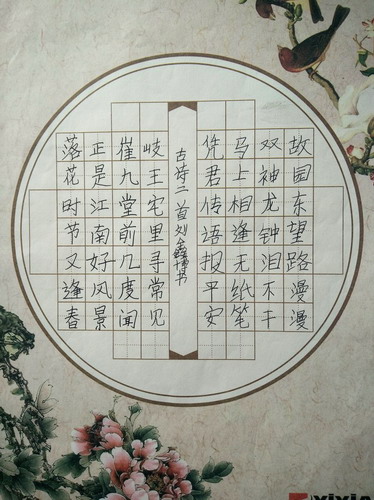 故园东望路漫漫
双神龙钟泪不干
马上相逢无纸笔
凭君传语报平安
古诗二首刘书
岐王宅里寻常见
崔九堂前几度闻
正是江南好风景
落花时节又逢春